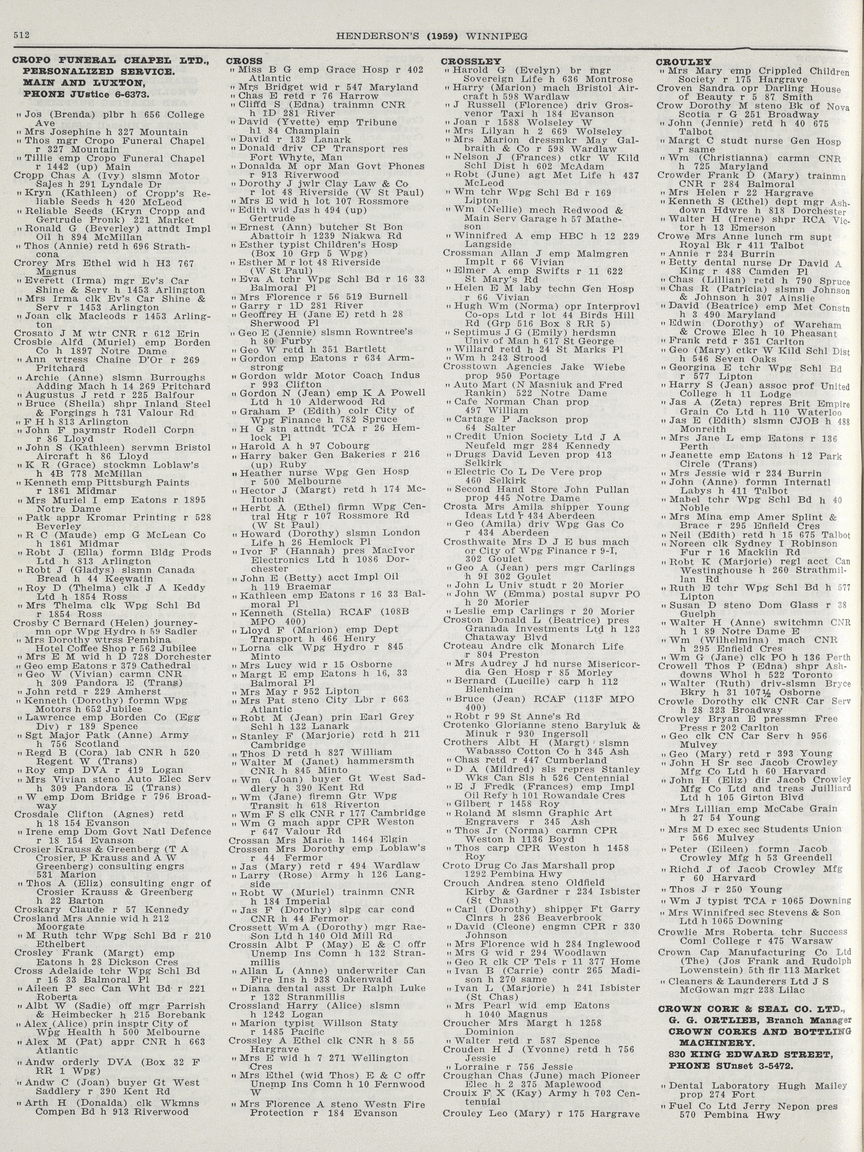 512
HENDERSON'S (1959) WINNIPEG
CROPO FUNERAL CHAPEL LTD.,
PERSONALIZED SERVICE.
MAIN AND LUXTON,
PHONE JUstice 6-6373.
" Jos (Brenda) plbr h 656 College
Ave
" Mrs Josephine h 327 Mountain
" Thos mgr Cropo Funeral Chapel
r 327 Mountain
" Tillie emp Cropo Funeral Chapel
r 1442 (up) Main
Cropp Chas A (Ivy) slsmn Motor
Sales h 291 Lyndale Dr
" Kryn (Kathleen) of Cropp's Re-
liable Seeds h 420 McLeod
" Reliable Seeds (Kryn Cropp and
Gertrude Pronk) 221 Market
" Ronald G (Beverley) attndt Impl
Oil h 894 McMillan
" Thos (Annie) retd h 696 Strath-
cona
Crorey Mrs Ethel wid h H3 767
Magnus
" Everett (Irma) mgr Ev's Car
Shine & Serv h 1453 Arlington
" Mrs Irma clk Ev's Car Shine &
Serv r 1453 Arlington
" Joan clk Macleods r 1453 Arling-
ton
Crosato J M wtr CNR r 612 Erin
Crosbie Alfd (Muriel) emp Borden
Co h 1897 Notre Dame
" Ann wtress Chaine D'Or r 269
Pritchard
" Archie (Anne) slsmn Burroughs
Adding Mach h 14 269 Pritchard
" Augustus J retd r 225 Balfour
" Bruce (Shella) shpr Inland Steel
& Forgings h 731 Valour Rd
" F H h 813 Arlington
" John F paymstr Rodell Corpn
r 86 Lloyd
" John S (Kathleen) servmn Bristol
Aircraft h 86 Lloyd
" K R (Grace) stockmn Loblaw's
h 4B 778 McMillan
" Kenneth emp Pittsburgh Paints
r 1861 Midmar
" Mrs Muriel I emp Eatons r 1895
Notre Dame
" Patk appr Kromar Printing r 528
Beverley
" R C (Maude) emp G McLean Co
h 1861 Midmar
" Robt J (Ella) formn Bldg Prods
Ltd h 813 Arlington
" Robt J (Gladys) slsmn Canada
Bread h 44 Keewatin
" Roy D (Thelma) clk J A Keddy
Ltd h 1854 Ross
" Mrs Thelma clk Wpg Schl Bd
r 1854 Ross
Crosby C Bernard (Helen) journey-
mn opr Wpg Hydro h 59 Sadler
" Mrs Dorothy wtrss Pembina
Hotel Coffee Shop r 562 Jubilee
" Mrs E M wid h D 728 Dorchester
" Geo emp Eatons r 379 Cathedral
" Geo W (Vivian) carmn CNR
h 309 Pandora E (Trans)
" John retd r 229 Amherst
" Kenneth (Dorothy) formn Wpg
Motors h 652 Jubilee
" Lawrence emp Borden Co (Egg
Div) r 189 Spence
" Sgt Major Patk (Anne) Army
h 756 Scotland
" Regd B (Cora) lab CNR h 520
Regent W (Trans)
" Roy emp DVA r 419 Logan
" Mrs Vivian steno Auto Elec Serv
h 309 Pandora E (Trans)
" W emp Dom Bridge r 796 Broad-
way
Crosdale Clifton (Agnes) retd
h 13 154 Evanson
" Irene emp Dom Govt Natl Defence
r 18 154 Evanson
Crosier Krauss & Greenberg (T A
Crosier, P Krauss and A W
Greenberg) consulting engrs
531 Marion
" Thos A (Eliz) consulting engr of
Crosier Krauss & Greenberg
h 22 Barton
Croskary Claude r 57 Kennedy
Crosland Mrs Annie wid h 212
Moorgate
" M Ruth tchr Wpg Schl Bd r 210
Ethelbert
Crosley Frank (Margt) emp
Eatons h 28 Dickson Cres
Cross Adelaide tchr Wpg Schl Bd
r 16 33 Balmoral Pl
" Aileen P sec Can Wht Bd r 221
Roberta
" Albt W (Sadie) off mgr Parrish
& Heimbecker h 215 Borebank
" Alex (Alice) prin insptr City of
Wpg Health h 500 Melbourne
" Alex M (Pat) appr CNR h 663
Atlantic
" Andw orderly DVA (Box 32 F
RR 1 Wpg)
" Andw C (Joan) buyer Gt West
Saddlery r 390 Kent Rd
" Arth H (Donalda) clk Wkmns
Compen Bd h 913 Riverwood
CROSS
" Miss B G emp Grace Hosp r 402
Atlantic
" Mrs Bridget wid r 547 Maryland
" Chas E retd r 76 Harrow
" Cliffd S (Edna) trainmn CNR
h 1D 281 River
" David (Yvette) emp Tribune
h1 84 Champlain
" David r 132 Lanark
" Donald driv CP Transport res
Fort Whyte, Man
" Donalda M opr Man Govt Phones
r 913 Riverwood
" Dorothy J jwlr Clay Law & Co
r lot 48 Riverside (W St Paul)
" Mrs E wid h lot 107 Rossmore
" Edith wid Jas h 494 (up)
Gertrude
" Ernest (Ann) butcher St Bon
Abattoir h 1239 Niakwa Rd
" Esther typist Children's Hosp
(Box 10 Grp 5 Wpg)
" Esther M r lot 48 Riverside
(W St Paul)
" Eva A tchr Wpg Schl Bd r 16 33
Balmoral Pl
" Mrs Florence r 56 519 Burnell
" Garry r 1D 281 River
" Geoffrey H (Jane E) retd h 28
Sherwood Pl
" Geo E (Jennie) slsmn Rowntree's
h 80 Furby
" Geo W retd h 351 Bartlett
" Gordon emp Eatons r 634 Arm-
strong
" Gordon wldr Motor Coach Indus
r 993 Clifton
" Gordon N (Jean) emp K A Powell
Ltd h 10 Alderwood Rd
" Graham P (Edith) colr City of
Wpg Finance h 782 Spruce
" H G stn attndt TCA r 26 Hem-
lock Pl
" Harold A h 97 Cobourg
" Harry baker Gen Bakeries r 216
(up) Ruby
" Heather nurse Wpg Gen Hosp
r 500 Melbourne
" Hector J (Margt) retd h 174 Mc-
Intosh
" Herbt A (Ethel) firmn Wpg Cen-
tral Htg r 107 Rossmore Rd
(W St Paul)
" Howard (Dorothy) slsmn London
Life h 26 Hemlock Pl
" Ivor F (Hannah) pres MacIvor
Electronics Ltd h 1086 Dor-
chester
" John E (Betty) acct Impl Oil
h 119 Braemar
" Kathleen emp Eatons r 16 33 Bal-
moral Pl
" Kenneth (Stella) RCAF (108B
MPO 400)
" Lloyd F (Marion) emp Dept
Transport h 466 Henry
" Lorna clk Wpg Hydro r 845
Minto
" Mrs Lucy wid r 15 Osborne
" Margt E emp Eatons h 16, 33
Balmoral Pl
" Mrs May r 952 Lipton
" Mrs Pat steno City Lbr r 663
Atlantic
" Robt M (Jean) prin Earl Grey
Schl h 132 Lanark
" Stanley F (Marjorie) retd h 211
Cambridge
" Thos D retd h 827 William
" Walter M (Janet) hammersmth
CNR h 845 Minto
" Wm (Joan) buyer Gt West Sad-
dlery h 390 Kent Rd
" Wm (Jane) firemn Gtr Wpg
Transit h 618 Riverton
" Wm F S clk CNR r 177 Cambridge
" Wm G mach appr CPR Weston
r 647 Valour Rd
Crossan Mrs Marie h 1464 Elgin
Crossen Mrs Dorothy emp Loblaw's
r 44 Fermor
" Jas (Mary) retd r 494 Wardlaw
" Larry (Rose) Army h 126 Lang-
side
" Robt W (Muriel) trainmn CNR
h 184 Imperial
" Jas F (Dorothy) slpg car cond
CNR h 44 Fermor
Crossett Wm A (Dorothy) mgr Rae-
Son Ltd h 140 Old Mill Rd
Crossin Albt P (May) E & C offr
Unemp Ins Comn h 132 Stran-
millis
" Allan L (Anne) underwriter Can
Fire Ins h 938 Oakenwald
" Diana dental asst Dr Ralph Luke
r 132 Stranmillis
Crossland Harry (Alice) slsmn
h 1242 Logan
" Marion typist Willson Staty
r 1485 Pacific
Crossley A Ethel clk CNR h 8 55
Hargrave
" Mrs E wid h 7 271 Wellington
Cres
" Mrs Ethel (wid Thos) E & C offr
Unemp Ins Comn h 10 Fernwood
W
" Mrs Florence A steno Westn Fire
Protection r 184 Evanson
CROSSLEY
" Harold G (Evelyn) br mgr
Sovereign Life h 636 Montrose
" Harry (Marion) mach Bristol Air-
craft h 598 Wardlaw
" J Russell (Florence) driv Gros-
venor Taxi h 184 Evanson
" Joan r 1588 Wolseley W
" Mrs Lilyan h 2 669 Wolseley
" Mrs Marion dressmkr May Gal-
braith & Co r 598 Wardlaw
" Nelson J (Frances) ctkr W Kild
Schl Dist h 602 McAdam
" Robt (June) agt Met Life h 437
McLeod
" Wm tchr Wpg Schl Bd r 169
Lipton
" Wm (Nellie) mech Redwood &
Main Serv Garage h 57 Mathe-
son
" Winnifred A emp HBC h 12 239
Langside
Crossman Allan J emp Malmgren
Implt r 66 Vivian
" Elmer A emp Swifts r 11 622
St Mary's Rd
" Helen E M laby techn Gen Hosp
r 66 Vivian
" Hugh Wm (Norma) opr Interprovl
Co-ops Ltd r lot 44 Birds Hill
Rd (Grp 516 Box 8 RR 5)
" Septimus J G (Emily) herdsmn
Univ of Man h 617 St George
" Willard retd h 24 St Marks Pl
" Wm h 243 Strood
Crosstown Agencies Jake Wiebe
prop 950 Portage
" Auto Mart (N Masniuk and Fred
Rankin) 522 Notre Dame
" Cafe Norman Chan prop
497 William
" Cartage P Jackson prop
64 Salter
" Credit Union Society Ltd J A
Neufeld mgr 284 Kennedy
" Drugs David Leven prop 413
Selkirk
" Electric Co L De Vere prop
460 Selkirk
" Second Hand Store John Pullan
prop 445 Notre Dame
Crosta Mrs Amila shipper Young
Ideas Ltd r 434 Aberdeen
" Geo (Amila) driv Wpg Gas Co
r 434 Aberdeen
Crosthwaite Mrs D J E bus mach
or City of Wpg Finance r 9-I,
302 Goulet
" Geo A (Jean) pers mgr Carlings
h 9I 302 Goulet
" John L Univ studt r 20 Morier
" John W (Emma) postal supvr PO
h 20 Morier
" Leslie emp Carlings r 20 Morier
Croston Donald L (Beatrice) pres
Granada Investments Ltd h 123
Chataway Blvd
Croteau Andre clk Monarch Life
r 804 Preston
" Mrs Audrey J hd nurse Misericor-
dia Gen Hosp r 85 Morley
" Bernard (Lucille) carp h 112
Blenheim
" Bruce (Jean) RCAF (113F MPO
400)
" Robt r 99 St Anne's Rd
Crotenko Glorianne steno Baryluk &
Minuk r 930 Ingersoll
Crothers Albt H (Margt) slsmn
Wabasso Cotton Co h 345 Ash
" Chas retd r 447 Cumberland
" D A (Mildred) sls repres Stanley
Wks Can Sls h 526 Centennial
" E J Fredk (Frances) emp Impl
Oil Refy h 101 Rowandale Cres
" Gilbert r 1458 Roy
" Roland M slsmn Graphic Art
Engravers r 345 Ash
" Thos Jr (Norma) carmn CPR
Weston h 1136 Boyd
" Thos carp CPR Weston h 1458
Roy
Croto Drug Co Jas Marshal prop
1292 Pembina Hwy
Crouch Andrea steno Oldfield
Kirby & Gardner r 234 Isbister
(St Chas)
" Carl (Dorothy) shipper Ft Garry
Clnrs h 286 Beaverbrook
" David (Cleone) engmn CPR r 330
Johnson
" Mrs Florence wid h 284 Inglewood
" Mrs G wid r 294 Woodlawn
" Geo R clk CP Tels r 11 377 Home
" Ivan B (Carrie) contr 265 Madi-
son h 270 same
" Ivan L (Marjorie) h 241 Isbister
(St Chas)
" Mrs Pearl wid emp Eatons
h 1040 Magnus
Croucher Mrs Margt h 1258
Dominion
" Walter retd r 587 Spence
Crouden H J (Yvonne) retd h 756
Jessie
" Lorraine r 756 Jessie
Croughan Chas (June) mach Pioneer
Elec h 2 375 Maplewood
Crouix F X (Kay) Army h 703 Cen-
tennial
Crouley Leo (Mary) r 175 Hargrave
CROULEY
" Mrs Mary emp Crippled Children
Society r 175 Hargrave
Croven Sandra opr Darling House
of Beauty r 5 87 Smith
Crow Dorothy M steno Bk of Nova
Scotia r G 251 Broadway
" John (Jennie) retd h 40 675
Talbot
" Margt C studt nurse Gen Hosp
r same
" Wm (Christianna) carmn CNR
h 725 Maryland
Crowder Frank D (Mary) trainmn
CNR r 284 Balmoral
" Mrs Helen r 22 Hargrave
" Kenneth S (Ethel) dept mgr Ash-
down Hdwre h 818 Dorchester
" Walter H (Irene) shpr RCA Vic-
tor h 13 Emerson
Crowe Mrs Anne lunch rm supt
Royal Bk r 411 Talbot
" Annie r 234 Burrin
" Betty dental nurse Dr David A
King r 488 Camden Pl
" Chas (Lillian) retd h 790 Spruce
" Chas R (Patricia) slsmn Johnson
& Johnson h 307 Ainslie
" David (Beatrice) emp Met Constn
h 3 490 Maryland
" Edwin (Dorothy) of Wareham
& Crowe Elec h 10 Pheasant
" Frank retd r 351 Carlton
" Geo (Mary) ctkr W Kild Schl Dist
h 546 Seven Oaks
" Georgina E tchr Wpg Schl Bd
r 577 Lipton
" Harry S (Jean) assoc prof United
College h 11 Lodge
" Jas A (Zeta) repres Brit Empire
Grain Co Ltd h 110 Waterloo
" Jas E (Edith) slsmn CJOB h 488
Monreith
" Mrs Jane L emp Eatons r 136
Perth
" Jeanette emp Eatons h 12 Park
Circle (Trans)
" Mrs Jessie wid r 234 Burrin
" John (Anne) formn Internatl
Labys h 411 Talbot
" Mabel tchr Wpg Schl Bd h 40
Noble
" Mrs Mina emp Amer Splint &
Brace r 295 Enfield Cres
" Neil (Edith) retd h 15 675 Talbot
" Noreen clk Sydney I Robinson
Fur r 16 Macklin Rd
" Robt K (Marjorie) regl acct Can
Westinghouse h 260 Strathmil-
lan Rd
" Ruth E tchr Wpg Schl Bd h 577
Lipton
" Susan D steno Dom Glass r 38
Guelph
" Walter H (Anne) switchmn CNR
h 1 89 Notre Dame E
" Wm (Wilhelmina) mach CNR
h 295 Enfield Cres
" Wm G (Jane) clk PO h 136 Perth
Crowell Thos P (Edna) shpr Ash-
downs Whol h 522 Toronto
" Walter (Ruth) driv-slsmn Bryce
Bkry h 31 107½ Osborne
Crowle Dorothy clk CNR Car Serv
h 28 323 Broadway
Crowley Bryan E pressmn Free
Press r 202 Carlton
" Geo clk CN Car Serv h 956
Mulvey
" Geo (Mary) retd r 393 Young
" John H Sr sec Jacob Crowley
Mfg Co Ltd h 60 Harvard
" John H (Eliz) dir Jacob Crowley
Mfg Co Ltd and treas Juilliard
Ltd h 105 Girton Blvd
" Mrs Lillian emp McCabe Grain
h 27 54 Young
" Mrs M D exec sec Students Union
r 566 Mulvey
" Peter (Eileen) formn Jacob
Crowley Mfg h 53 Greendell
" Richd J of Jacob Crowley Mfg
r 60 Harvard
" Thos J r 250 Young
" Wm J typist TCA r 1065 Downing
" Mrs Winnifred sec Stevens & Son
Ltd h 1065 Downing
Crowlie Mrs Roberta tchr Success
Coml College r 475 Warsaw
Crown Cap Manufacturing Co Ltd
(The) (Jos Frank and Rudolph
Lowenstein) 5th flr 113 Market
" Cleaners & Launderers Ltd J S
McGowan mgr 238 Lilac
CROWN CORK & SEAL CO. LTD.,
G. G. ORTLIEB, Branch Manager
CROWN CORKS AND BOTTLING
MACHINERY.
830 KING EDWARD STREET,
PHONE SUnset 3-5472.
" Dental Laboratory Hugh Mailey
prop 274 Fort
" Fuel Co Ltd Jerry Nepon pres
570 Pembina Hwy